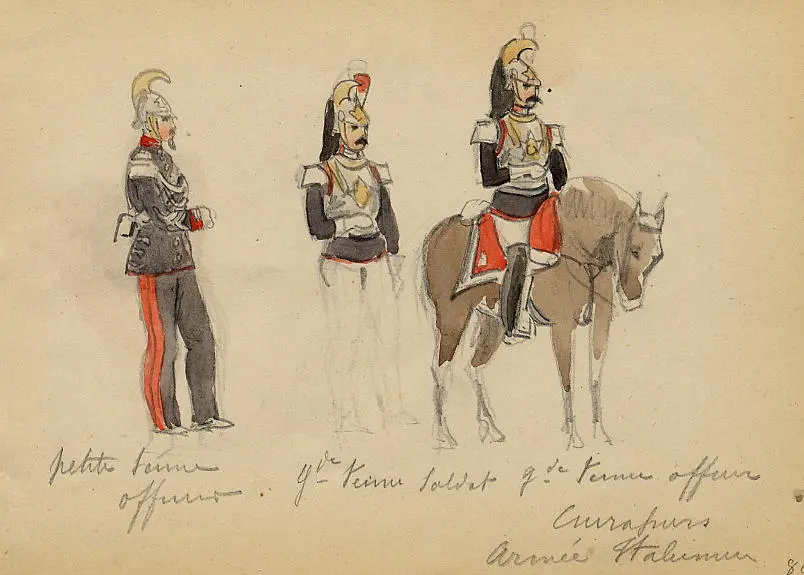 petite tenue
officier
gde tenue soldat gde tenue officier
Cuirassiers
Armée Italienne